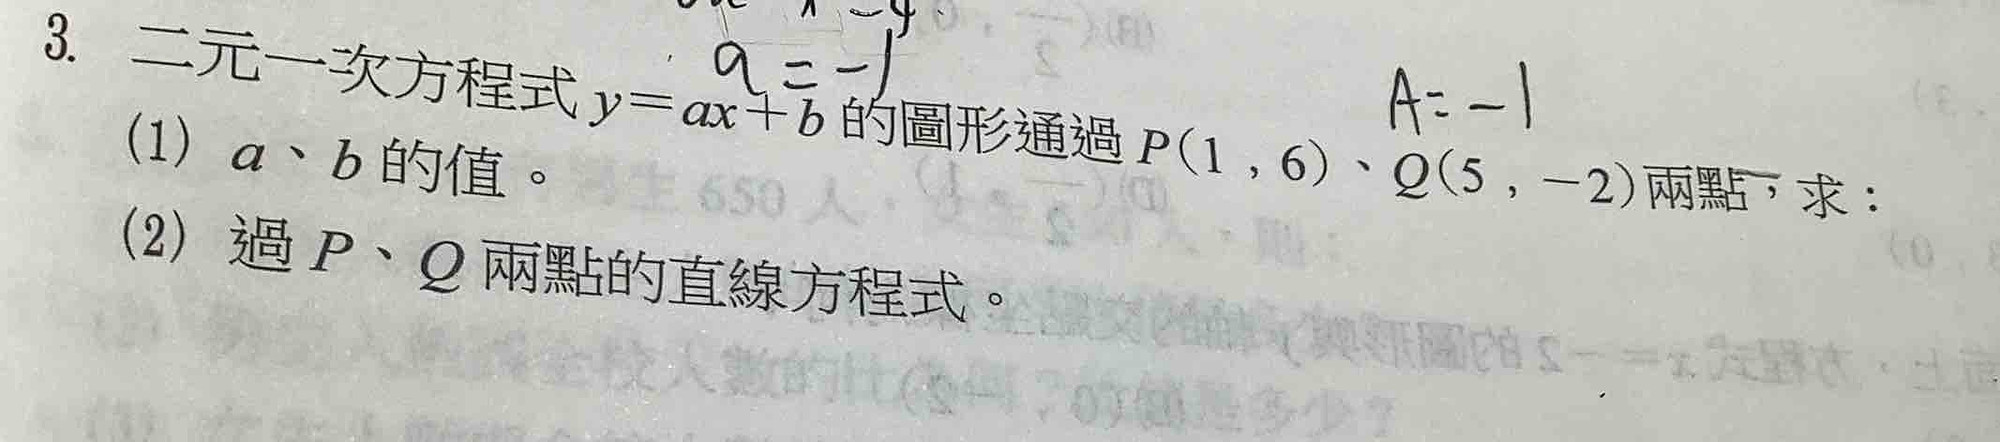 a = -1
A = -1
3. 二元一次方程式 y=ax+b 的圖形通過 P(1，6)、Q(5，-2)兩點，求：
(1) a、b 的值。
(2) 過 P、Q 兩點的直線方程式。